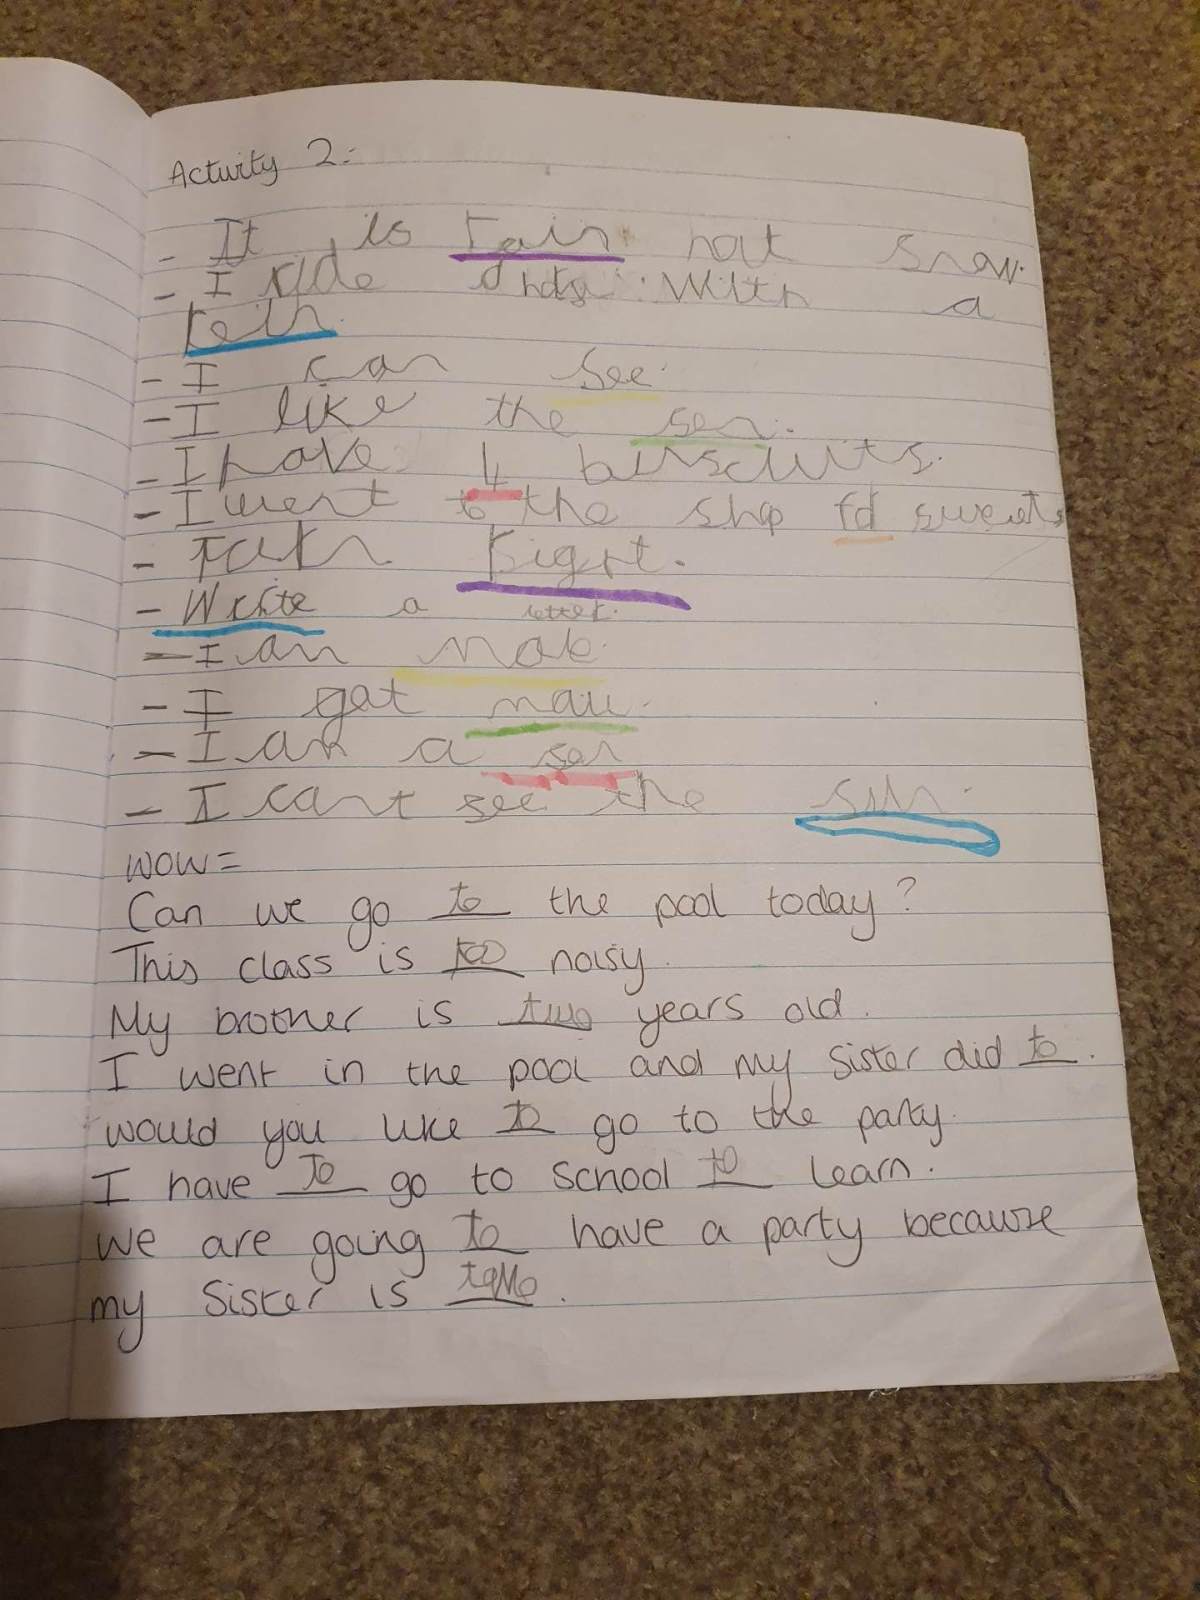 Activity 2:-
- It is rain not snow.
- I ride a horse with a
rein.
- I can see.
- I like the sea.
- I have 4 biscuits.
- I went to the shop for sweets
- Turn Right.
- Write a letter.
- I an
- I got
- I am a son
- I cant see the sun.
WOW =
Can we go to the pool today?
This class is too noisy.
My brother is two years old.
I went in the pool and my sister did to.
would you like to go to the party.
I have To go to school to learn.
We are going to have a party because
my sister is